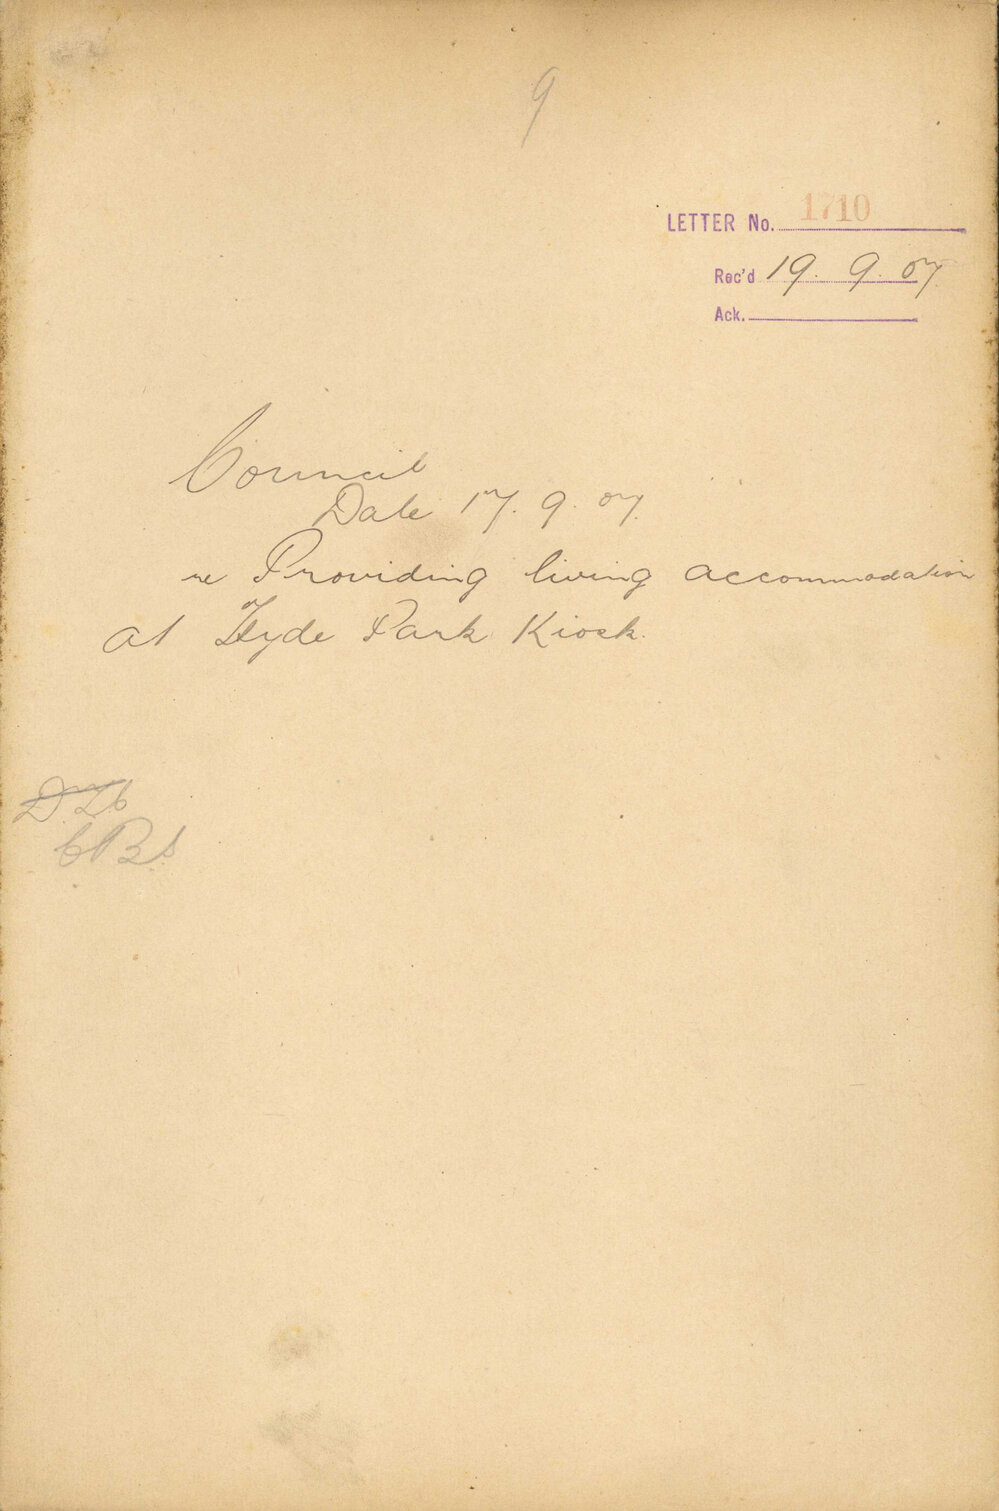 9
LETTER No. 1710
Rec'd 19. 9. 07
Ack.
Council
Date 17. 9. 07.
re Providing living accommodation
at Hyde Park Kiosk.